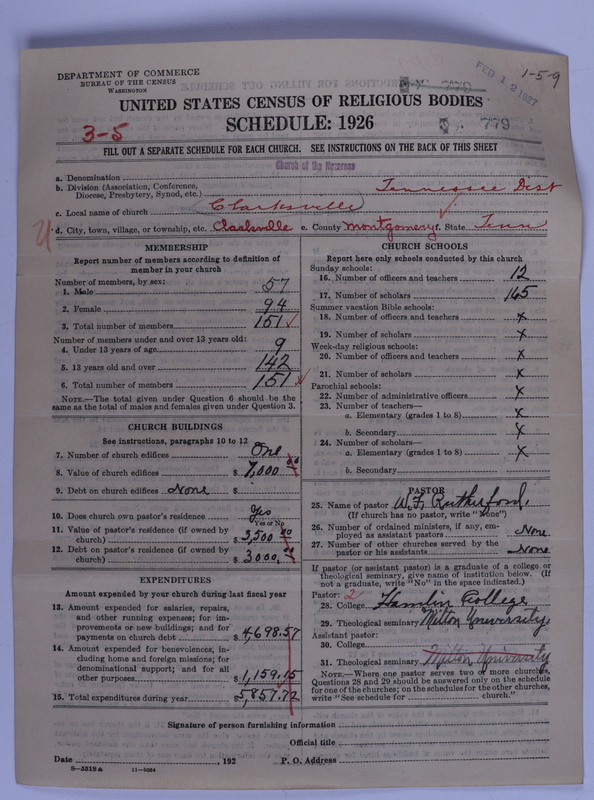 DEPARTMENT OF COMMERCE
BUREAU OF THE CENSUS
WASHINGTON
FEB 12 1927
1-5-9
UNITED STATES CENSUS OF RELIGIOUS BODIES
SCHEDULE: 1926
3-5
779
FILL OUT A SEPARATE SCHEDULE FOR EACH CHURCH. SEE INSTRUCTIONS ON THE BACK OF THIS SHEET
Church of the Nazarene
a. Denomination
b. Division (Association, Conference, Diocese, Presbytery, Synod, etc.) Tennessee Dist
c. Local name of church Clarksville
d. City, town, village, or township, etc. Clarksville e. County Montgomery f. State Tenn
MEMBERSHIP
Report number of members according to definition of
member in your church
Number of members, by sex:
1. Male 57
2. Female 94
3. Total number of members 151
Number of members under and over 13 years old:
4. Under 13 years of age 9
5. 13 years old and over 142
6. Total number of members 151
NOTE.—The total given under Question 6 should be
same as the total of males and females given under Question 3.
CHURCH BUILDINGS
See instructions, paragraphs 10 to 12
7. Number of church edifices One
8. Value of church edifices $7,000.00
9. Debt on church edifices None $
10. Does church own pastor's residence Yes
Yes or No
11. Value of pastor's residence (if owned by
church) $3,500.00
12. Debt on pastor's residence (if owned by
church) $3000.00
EXPENDITURES
Amount expended by your church during last fiscal year
13. Amount expended for salaries, repairs,
and other running expenses; for im-
provements or new buildings; and for
payments on church debt $4,698.57
14. Amount expended for benevolences, in-
cluding home and foreign missions; for
denominational support; and for all
other purposes $1,159.15
15. Total expenditures during year $5,857.72
CHURCH SCHOOLS
Report here only schools conducted by this church
Sunday schools:
16. Number of officers and teachers 12
17. Number of scholars 165
Summer vacation Bible schools:
18. Number of officers and teachers x
19. Number of scholars x
Week-day religious schools:
20. Number of officers and teachers x
21. Number of scholars x
Parochial schools:
22. Number of administrative officers x
23. Number of teachers—
a. Elementary (grades 1 to 8) x
b. Secondary x
24. Number of scholars—
a. Elementary (grades 1 to 8) x
b. Secondary
PASTOR
25. Name of pastor W. F. Rutherford
(If church has no pastor, write "None")
26. Number of ordained ministers, if any, em-
ployed as assistant pastors None
27. Number of other churches served by the
pastor or his assistants None
If pastor (or assistant pastor) is a graduate of a college or
theological seminary, give name of institution below. (If
not a graduate, write "No" in the space indicated.)
Pastor: 2
28. College Hamlin College
29. Theological seminary Milton University
Assistant pastor:
30. College
31. Theological seminary Milton University
NOTE.—Where one pastor serves two or more churches,
Questions 28 and 29 should be answered only on the schedule
for one of the churches; on the schedules for the other churches,
write "See schedule for church."
Signature of person furnishing information
Official title
Date , 192 P. O. Address
8—5518a 11—9064